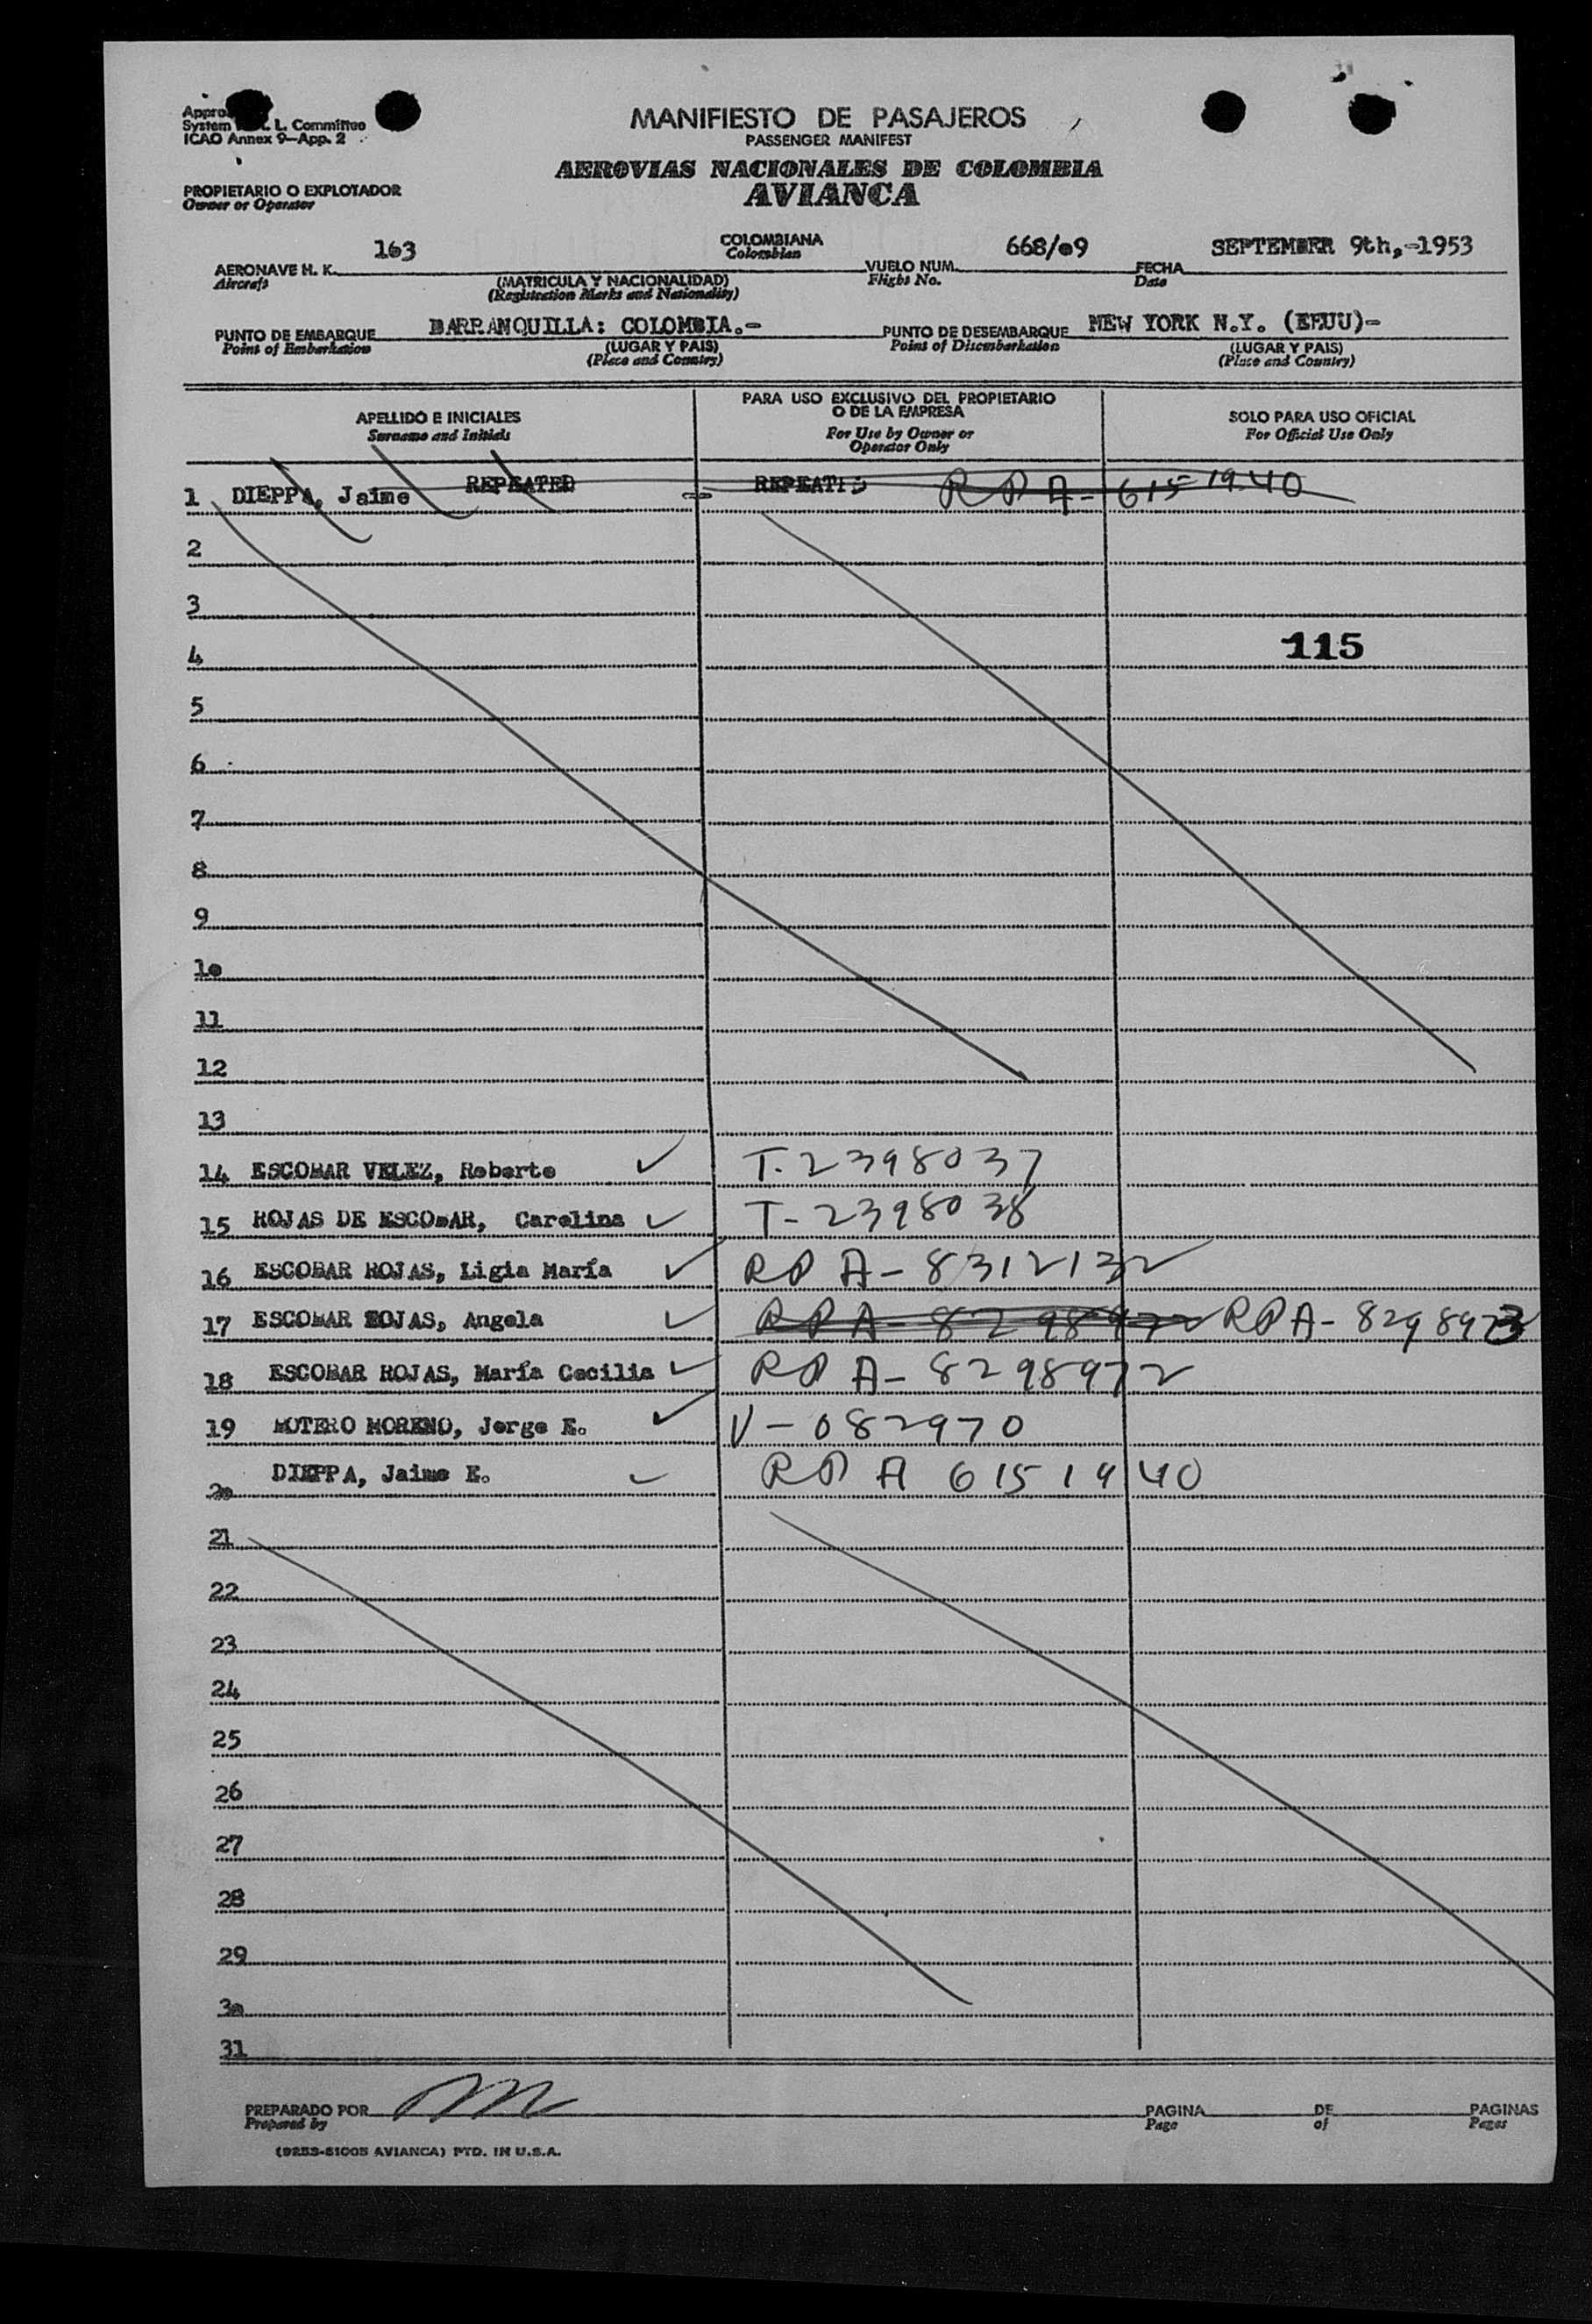 MANIFIESTO DE PASAJEROS
PASSENGER MANIFEST
System L. Committee
ICAO Annex 9—App. 2
AEROVIAS NACIONALES DE COLOMBIA
AVIANCA
PROPIETARIO O EXPLOTADOR
Owner or Operator
AERONAVE H. K. 163 COLOMBIANA VUELO NUM. 668/09 FECHA SEPTEMBER 9th,-1953
Aircraft Colombian Flight No. Date
(MATRICULA Y NACIONALIDAD)
(Registration Marks and Nationality)
PUNTO DE EMBARQUE BARRANQUILLA: COLOMBIA.- PUNTO DE DESEMBARQUE NEW YORK N.Y. (EEUU)-
Point of Embarkation (LUGAR Y PAIS) Point of Disembarkation (LUGAR Y PAIS)
(Place and Country) (Place and Country)
APELLIDO E INICIALES PARA USO EXCLUSIVO DEL PROPIETARIO O DE LA EMPRESA SOLO PARA USO OFICIAL
Surname and Initials For Use by Owner or Operator Only For Official Use Only
1 DIEPPA, Jaime REPEATED REPEATED RPA-6151940
2
3
4 115
5
6
7
8
9
10
11
12
13
14 ESCOBAR VELEZ, Roberto T-2398037
15 ROJAS DE ESCOBAR, Carolina T-2398038
16 ESCOBAR ROJAS, Ligia María RPA-8312132
17 ESCOBAR ROJAS, Angela RPA-8298972 RPA-8298973
18 ESCOBAR ROJAS, María Cecilia RPA-8298972
19 BOTERO MORENO, Jorge E. V-082970
20 DIEPPA, Jaime E. RPA 6151940
21
22
23
24
25
26
27
28
29
30
31
PREPARADO POR PAGINA DE PAGINAS
Prepared by Page of Pages
(9253-51005 AVIANCA) PTD. IN U.S.A.